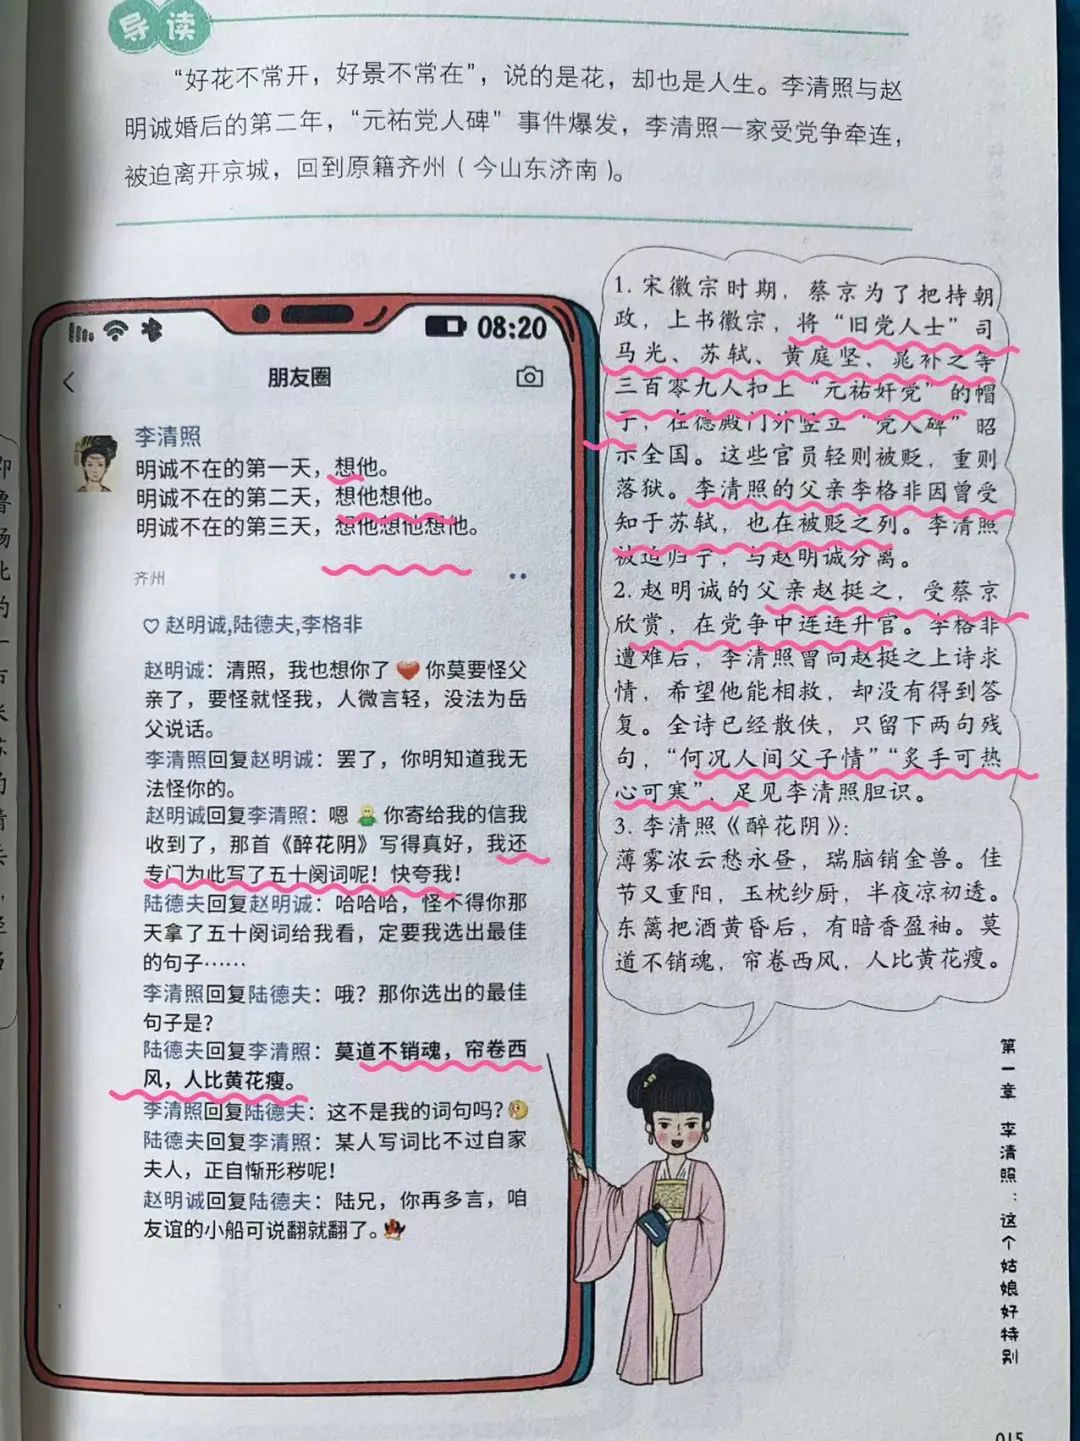 导读
“好花不常开，好景不常在”，说的是花，却也是人生。李清照与赵
明诚婚后的第二年，“元祐党人碑”事件爆发，李清照一家受党争牵连，
被迫离开京城，回到原籍齐州（今山东济南）。
08:20
朋友圈
李清照
明诚不在的第一天，想他。
明诚不在的第二天，想他想他。
明诚不在的第三天，想他想他想他。
齐州
赵明诚,陆德夫,李格非
赵明诚：清照，我也想你了❤你莫要怪父
亲了，要怪就怪我，人微言轻，没法为岳
父说话。
李清照回复赵明诚：罢了，你明知道我无
法怪你的。
赵明诚回复李清照：嗯 你寄给我的信我
收到了，那首《醉花阴》写得真好，我还
专门为此写了五十阕词呢！快夸我！
陆德夫回复赵明诚：哈哈哈，怪不得你那
天拿了五十阕词给我看，定要我选出最佳
的句子……
李清照回复陆德夫：哦？那你选出的最佳
句子是？
陆德夫回复李清照：莫道不销魂，帘卷西
风，人比黄花瘦。
李清照回复陆德夫：这不是我的词句吗？
陆德夫回复李清照：某人写词比不过自家
夫人，正自惭形秽呢！
赵明诚回复陆德夫：陆兄，你再多言，咱
友谊的小船可说翻就翻了。
1. 宋徽宗时期，蔡京为了把持朝
政，上书徽宗，将“旧党人士”司
马光、苏轼、黄庭坚、晁补之等
三百零九人扣上“元祐奸党”的帽
子，在德殿门外竖立“党人碑”昭
示全国。这些官员轻则被贬，重则
落狱。李清照的父亲李格非因曾受
知于苏轼，也在被贬之列。李清照
被迫归宁，与赵明诚分离。
2. 赵明诚的父亲赵挺之，受蔡京
欣赏，在党争中连连升官。李格非
遭难后，李清照曾向赵挺之上诗求
情，希望他能相救，却没有得到答
复。全诗已经散佚，只留下两句残
句，“何况人间父子情”“炙手可热
心可寒”，足见李清照胆识。
3. 李清照《醉花阴》：
薄雾浓云愁永昼，瑞脑销金兽。佳
节又重阳，玉枕纱厨，半夜凉初透。
东篱把酒黄昏后，有暗香盈袖。莫
道不销魂，帘卷西风，人比黄花瘦。
第一章 李清照：这个姑娘好特别
015